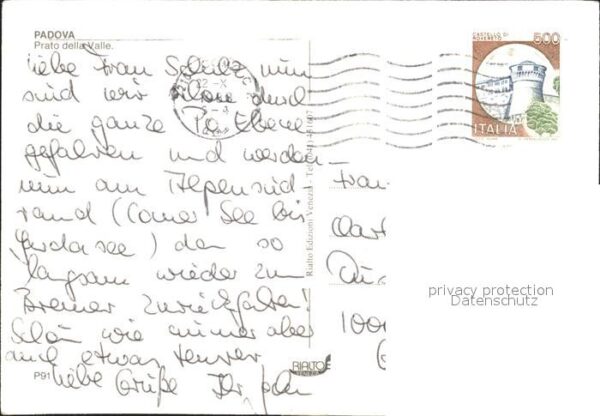 PADOVA
Prato della Valle.
liebe Frau Scholz nun
sind wir schon durch
die ganze Po Ebene
gefahren und werden
nun am Alpensüd
rand (Comer See bis
Gardasee) dan so
langsam wieder zum
Brenner zurückfahren!
Schön wie immer aber
auch etwas teurer
liebe Grüße Ihr
P91
RIALTO
VENEZIA
Rialto Edizioni Venezia - Tel.
CASTELLO DI
ROVERETO
500
ITALIA
Frau
100
privacy protection
Datenschutz